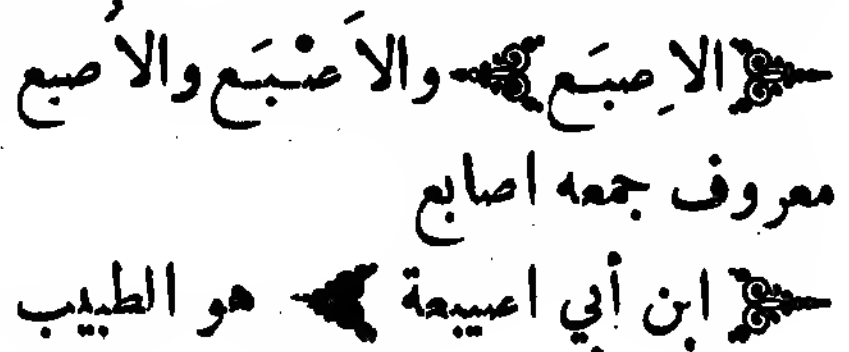 ﴿ الاِصبَع ﴾ والاَصْبَع والاُصبع
معروف جمعه اصابع
﴿ ابن أبي اصيبعة ﴾ هو الطبيب